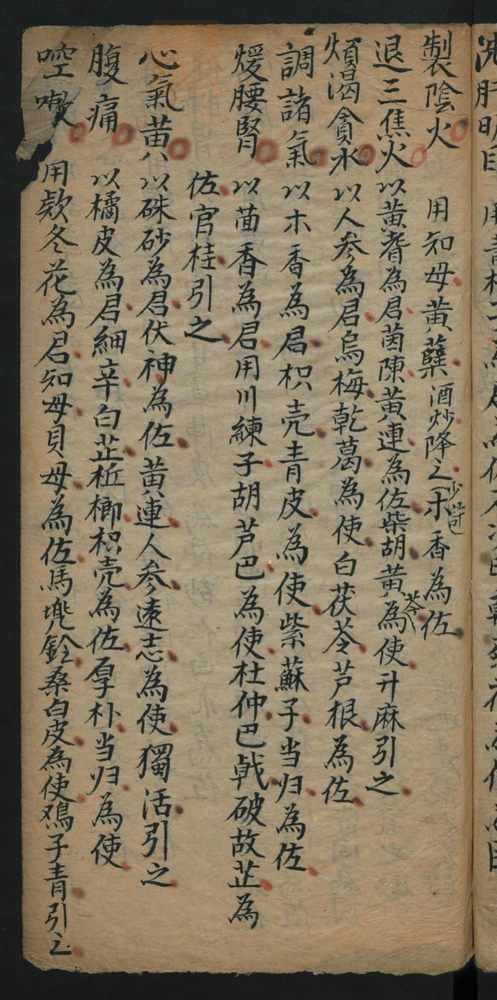 洗肝明目
製陰火 用知母黄蘗酒炒降之木香少許為佐
退三焦火以黄耆為君茵陳黄連為佐柴胡黄芩為使升麻引之
煩渴貪水以人参為君烏梅乾葛為使白茯苓芦根為佐
調諸氣以木香為君枳壳青皮為使紫蘇子当归為佐
煖腰腎以茴香為君用川練子胡芦巴為使杜仲巴戟破故芷為
佐官桂引之
心氣黄以硃砂為君伏神為佐黄連人参遠志為使獨活引之
腹痛以橘皮為君細辛白芷梹榔枳壳為佐厚朴当归為使
啌嗽 用欵冬花為君知母貝母為佐馬兠鈴桑白皮為使鳮子青引之